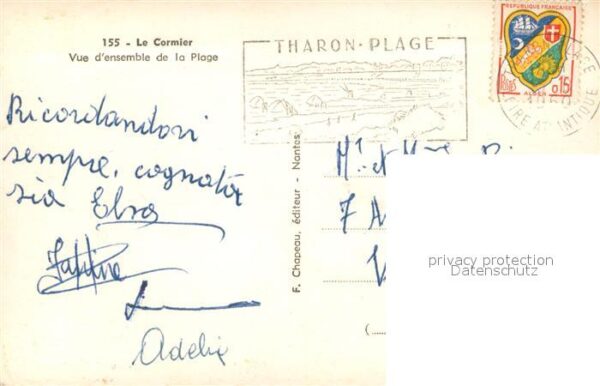 155 - Le Cormier
Vue d'ensemble de la Plage
THARON-PLAGE
REPUBLIQUE FRANÇAISE
POSTES
0.15
ALGER
PLAGE
LOIRE ATLANTIQUE
Ricordandovi
sempre, cognata
zia Elsa
Adelie
F. Chapeau, éditeur - Nantes
Mr. et Mme
7 A
privacy protection
Datenschutz